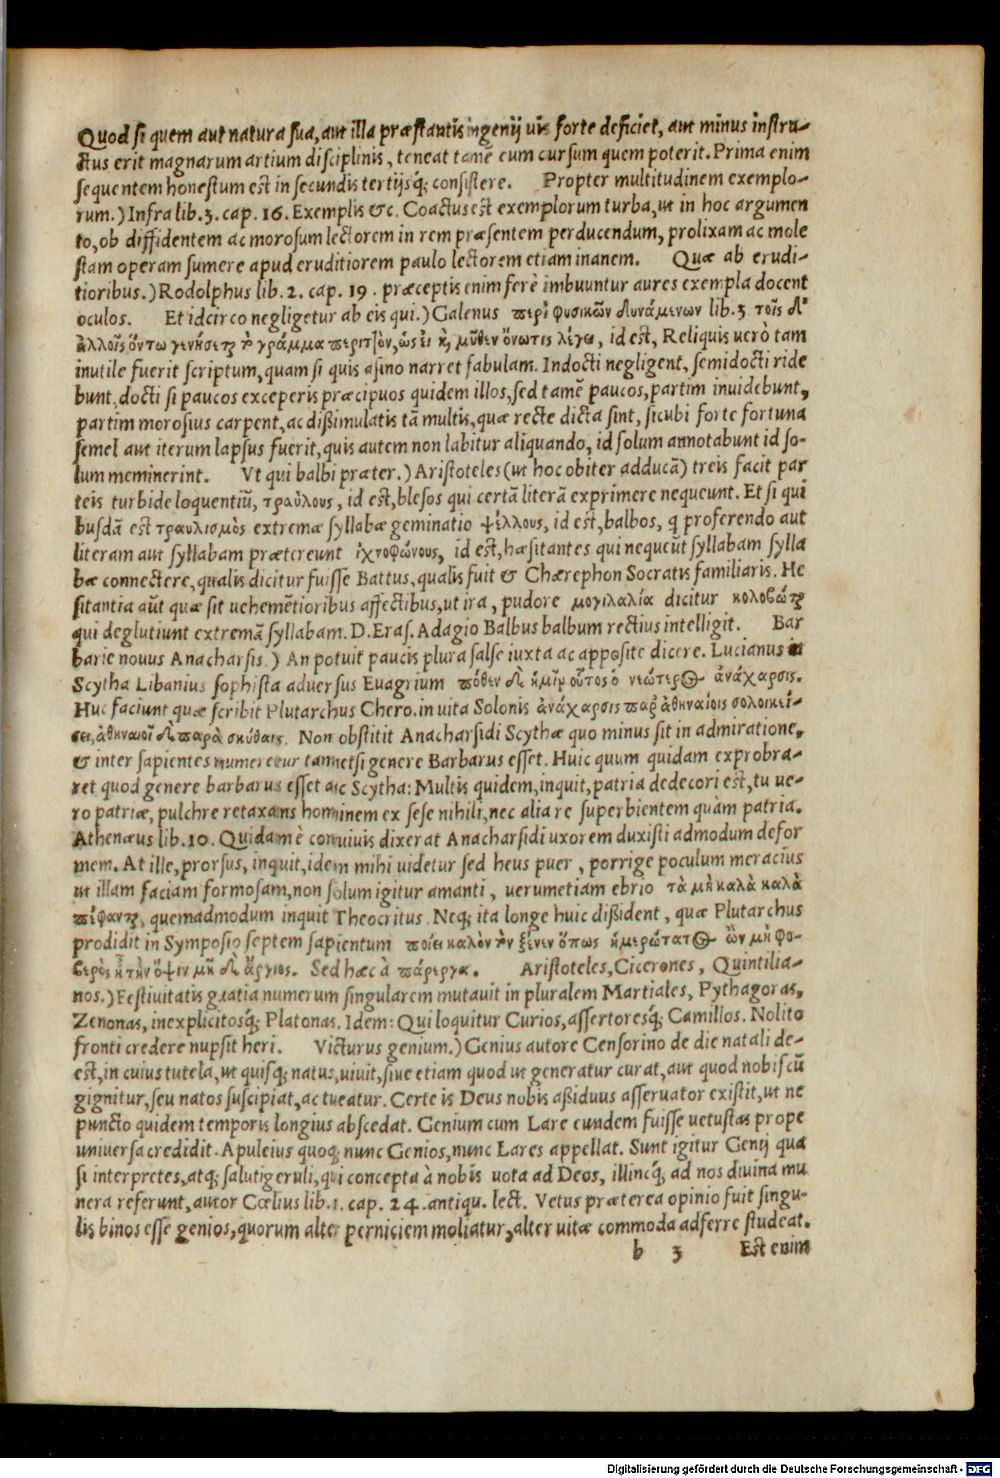 Quod si quem aut natura sua, aut illa præstantis ingenij uis forte deficiet, aut minus instru-
ctus erit magnarum artium disciplinis, teneat tamē eum cursum quem poterit. Prima enim
sequentem honestum est in secundis tertijsq; consistere. Propter multitudinem exemplo-
rum.) Infra lib. 3. cap. 16. Exemplis &c. Coactus est exemplorum turba, ut in hoc argumen
to, ob diffidentem ac morosum lectorem in rem præsentem perducendum, prolixam ac mole
stam operam sumere apud eruditiorem paulo lectorem etiam inanem. Quæ ab erudi-
tioribus.) Rodolphus lib. 2. cap. 19. præceptis enim ferè imbuuntur aures exempla docent
oculos. Et idcirco negligetur ab eis qui.) Galenus περὶ φυσικῶν δυνάμενων lib. 3 τοῖς δ'
ἀλλοῖς ὄντω γενήσεται τὸ γράμμα περιττὸν, ὡς εἰ καὶ μῦθον ὄνω τις λέγω, id est, Reliquis uerò tam
inutile fuerit scriptum, quam si quis asino narret fabulam. Indocti negligent, semidocti ride
bunt, docti si paucos exceperis præcipuos quidem illos, sed tamē paucos, partim inuidebunt,
partim morosius carpent, ac dißimulatis tā multis, quæ recte dicta sint, sicubi forte fortuna
semel aut iterum lapsus fuerit, quis autem non labitur aliquando, id solum annotabunt id so-
lum meminerint. Vt qui balbi præter.) Aristoteles (ut hoc obiter adducā) treis facit par
teis turbide loquentiū, τραύλους, id est, blesos qui certā literā exprimere nequeunt. Et si qui
busdā est τραυλισμὸς extremæ syllabæ geminatio ψέλλους, id est, balbos, q proferendo aut
literam aut syllabam prætereunt ἰχνοφώνους, id est, hæsitantes qui nequeūt syllabam sylla
bæ connectere, qualis dicitur fuisse Battus, qualis fuit & Chærephon Socratis familiaris. Hę
sitantia aūt quæ sit uehemētioribus affectibus, ut ira, pudore μογιλαλία dicitur κολοβῶται
qui deglutiunt extremā syllabam. D. Eras. Adagio Balbus balbum rectius intelligit. Bar
barie nouus Anacharsis.) An potuit paucis plura salse iuxta ac apposite dicere. Lucianus in
Scytha Libanius sophista aduersus Euagrium πόθεν δὲ ἡμῖν οὗτος ὁ νεώτερος ἀνάχαρσις.
Huc faciunt quæ scribit Plutarchus Chero. in uita Solonis ἀνάχαρσις παρ' ἀθηναίοις σολοικεί-
σει, ἀθηναῖοι δὲ παρὰ σκύθαις. Non obstitit Anacharsidi Scythæ quo minus sit in admiratione,
& inter sapientes numeretur tametsi genere Barbarus esset. Huic quum quidam exprobra-
ret quod genere barbarus esset ac Scytha: Multis quidem, inquit, patria dedecori est, tu ue-
ro patriæ, pulchre retaxans hominem ex sese nihili, nec alia re superbientem quàm patria.
Athenæus lib. 10. Quidam è conuiuis dixerat Anacharsidi uxorem duxisti admodum defor
mem. At ille, prorsus, inquit, idem mihi uidetur sed heus puer, porrige poculum meracius
ut illam faciam formosam, non solum igitur amanti, uerumetiam ebrio τὰ μὴ καλὰ καλὰ
πέφανται, quemadmodum inquit Theocritus. Neq; ita longe huic dißident, quæ Plutarchus
prodidit in Symposio septem sapientum ποίει καλὸν τὸν ξένον ὅπως ἡμερώτατος ὢν μὴ φο-
βερὸς ᾖ τὴν ὄψιν μηδὲ ἄργιος. Sed hæc à πάρεργα. Aristoteles, Cicerones, Quintilia-
nos.) Festiuitatis gratia numerum singularem mutauit in pluralem Martiales, Pythagoras,
Zenonas, inexplicitosq; Platonas. Idem: Qui loquitur Curios, assertoresq; Camillos. Nolito
fronti credere nupsit heri. Victurus genium.) Genius autore Censorino de die natali de-
est, in cuius tutela, ut quisq; natus, uiuit, siue etiam quod ut generatur curat, aut quod nobiscū
gignitur, seu natos suscipiat, ac tueatur. Certe is Deus nobis aßiduus asseruator existit, ut ne
puncto quidem temporis longius abscedat. Genium cum Lare eundem fuisse uetustas prope
uniuersa credidit. Apuleius quoq; nunc Genios, nunc Lares appellat. Sunt igitur Genij qua
si interpretes, atq; salutigeruli, qui concepta à nobis uota ad Deos, illincq; ad nos diuina mu
nera referunt, autor Cœlius lib. 1. cap. 24. antiqu. lect. Vetus præterea opinio fuit singu-
lis binos esse genios, quorum alter perniciem moliatur, alter uitæ commoda adferre studeat.
b 3 Est enim
Digitalisierung gefördert durch die Deutsche Forschungsgemeinschaft - DFG